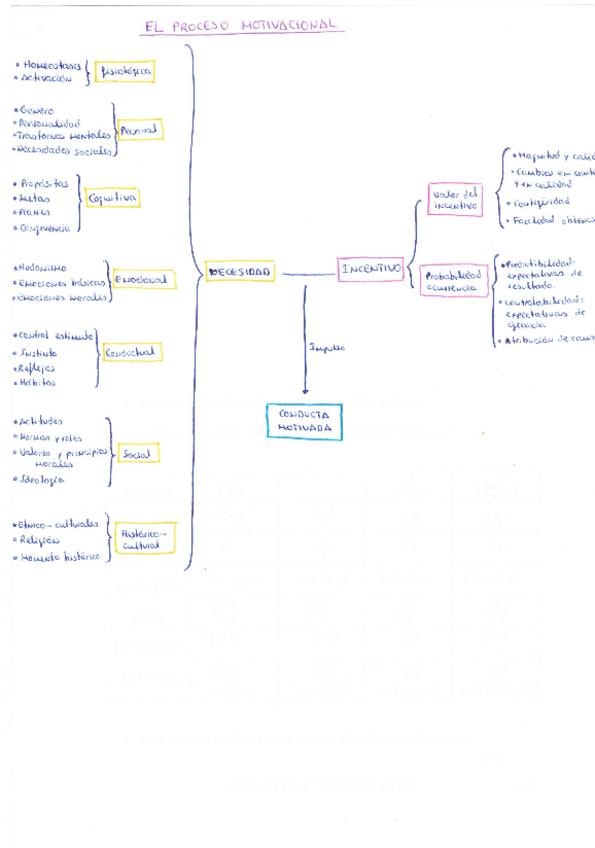 EL PROCESO MOTIVACIONAL
• Homeostasis
• Activación
Fisiológica
• Género
• Personalidad
• Trastornos mentales
• Necesidades sociales
Personal
• Propósitos
• Metas
• Planes
Cognitiva
• Hedonismo
• Emociones básicas
• Emociones morales
Emocional
• Control estímulo
• Instinto
• Reflejos
• Hábitos
Conductual
• Actitudes
• Normas y roles
• Valores y principios
morales
• Ideología
Social
• Etnico-culturales
• Religión
• Momento histórico
Histórico-
cultural
NECESIDAD
INCENTIVO
Impulso
CONDUCTA
MOTIVADA
Valor del
incentivo
• Magnitud y
• Cambios en
y en calidad
• Contigüidad
• Facilidad
Probabilidad
ocurrencia
• Predictibilidad:
expectativas de
resultado.
• Controlabilidad:
expectativas de
eficacia
• Atribución de